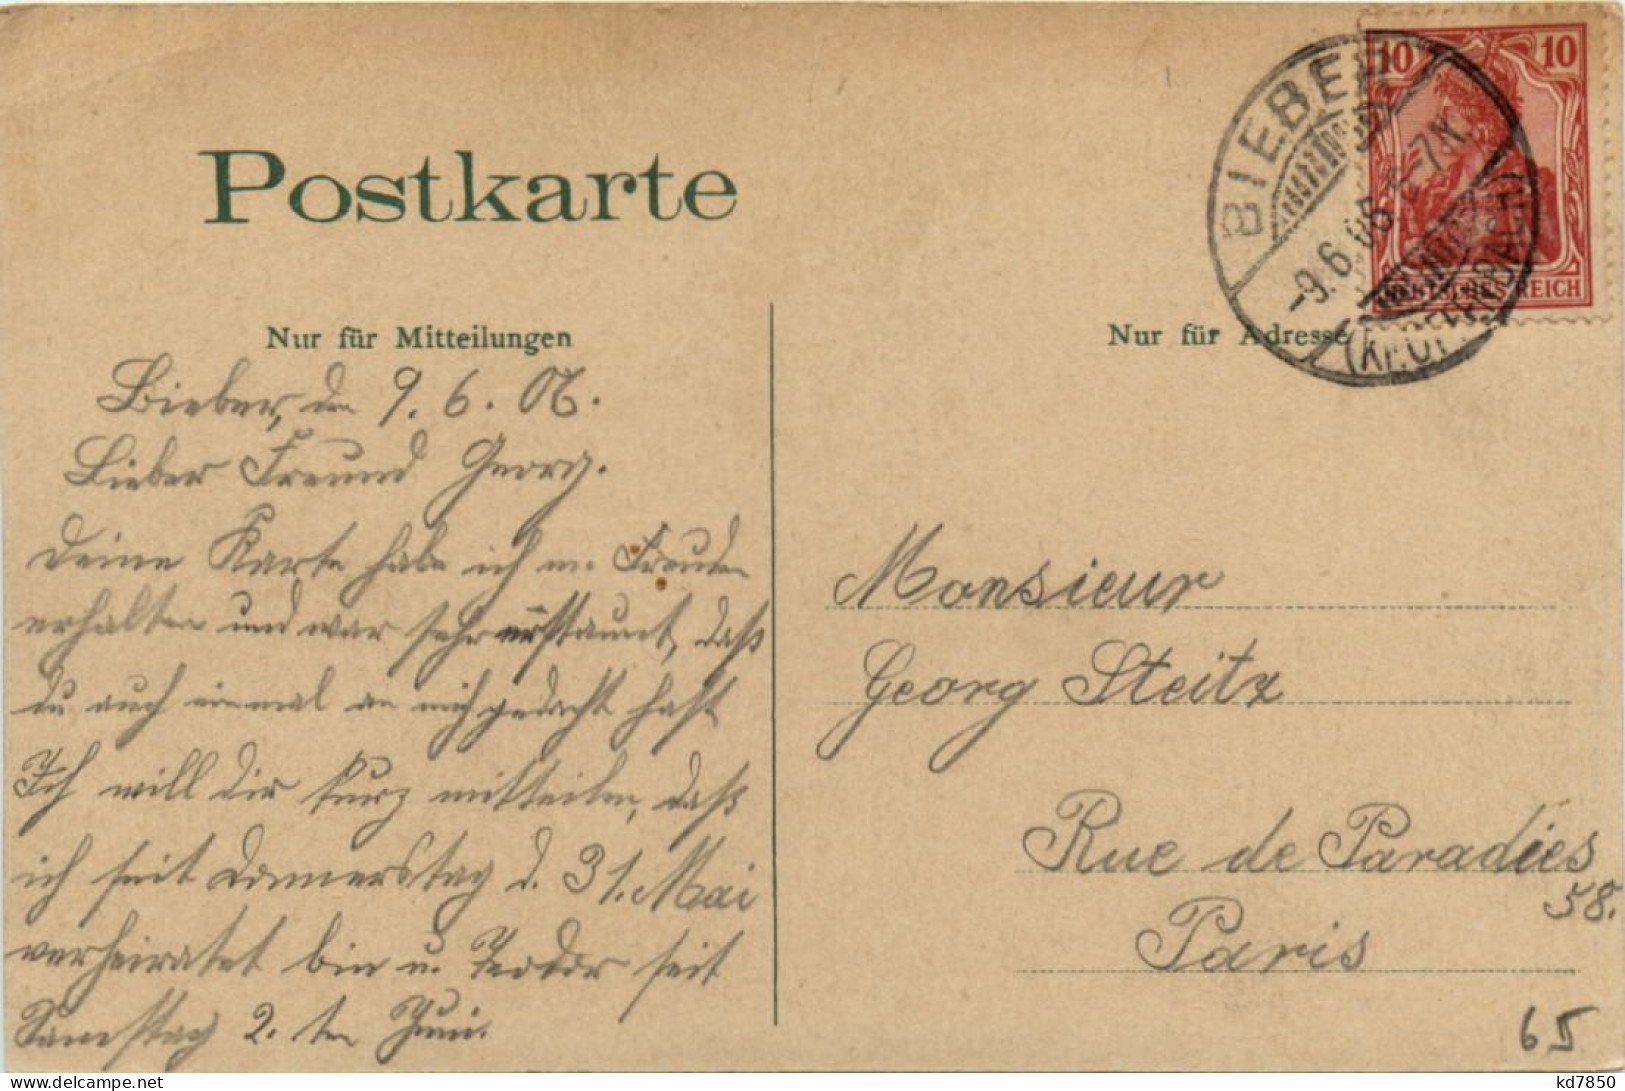 Postkarte
BIEBER
-9.6.06. 6-7N.
10 10
DEUTSCHES REICH
Nur für Mitteilungen
Bieber, den 9. 6. 06.
Lieber Freund Georg.
Deine Karte habe ich m. Freuden
erhalten und war sehr erstaunt, daß
du auch einmal an mich gedacht hast
Ich will dir kurz mitteilen, daß
ich seit Donnerstag d. 31. Mai
verheiratet bin u. Teodor seit
Samstag 2. ten Juni.
Nur für Adresse
Monsieur
Georg Steitz
Rue de Paradies
58.
Paris
65
delcampe.net
kd7850